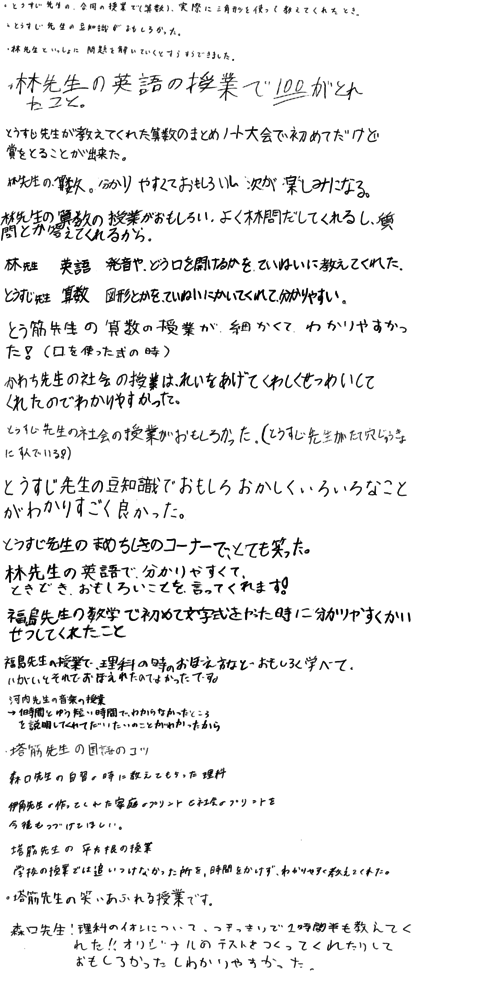 ・とうすじ先生の、合同の授業で(算数)、実際に三角形を使って教えてくれたとき。
・とうすじ先生の豆知識がおもしろかった。
・林先生といっしょに問題を解いていくとすらすらできました。
・林先生の英語の授業で100がとれ
たこと。
とうすじ先生が教えてくれた算数のまとめノート大会で初めてだけど
賞をとることが出来た。
林先生の、算数。分かりやすくておもしろいし、次が楽しみになる。
林先生の算数の授業がおもしろい。よく林問だしてくれるし、質
問とか答えてくれるから。
林先生 英語 発音や、どう口を開けるかを、ていねいに教えてくれた。
とうすじ先生 算数 図形とかを、ていねいにかいてくれて、分かりやすい。
とう筋先生の算数の授業が、細かくて、わかりやすかっ
た!(口を使った式の時)
かわち先生の社会の授業は、れいをあげてくわしくせつめいして
くれたのでわかりやすかった。
とうすじ先生の社会の授業がおもしろかった。(とうすじ先生がたて穴じゅうきょ
に)
とうすじ先生の豆知識でおもしろおかしくいろいろなこと
がわかりすごく良かった。
とうすじ先生のまめちしきのコーナーで、とても笑った。
林先生の英語で、分かりやすくて、
ときどき、おもしろいことを、言ってくれます!
福島先生の数学で初めて文字式をやった時に分かりやすくかい
せつしてくれたこと
福島先生の授業で、理科の時のおぼえ方などおもしろく学べて、
いがいとそれでおぼえれたのでよかったです
河内先生の音楽の授業
→1時間とゆう短い時間で、わからなかったところ
を説明してくれてだいたいのことがわかったから
・塔筋先生の国語のコツ
森口先生の自習の時に教えてもらった理科
伊角先生の作ってくれた家庭のプリントと社会のプリントを
今後もつづけてほしい。
塔筋先生の平方根の授業
学校の授業では追いつけなかった所を、時間をかけず、わかりやすく教えてくれた。
・塔筋先生の笑いあふれる授業です。
森口先生!理科のイオンについて、つきっきりで2時間半も教えてく
れた!!オリジナルのテストをつくってくれたりして
おもしろかったしわかりやすかった。